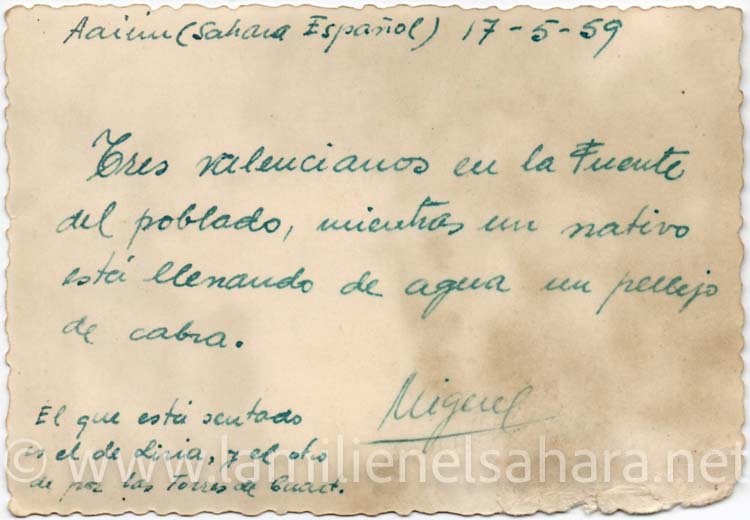 Aaiun (Sahara Español) 17-5-59
Tres valencianos en la Fuente
del poblado, mientras un nativo
está llenando de agua un pellejo
de cabra.
Miguel
El que está sentado
es el de Liria, y el otro
de por las Torres de Cuart.
© www.lamilienelsahara.net